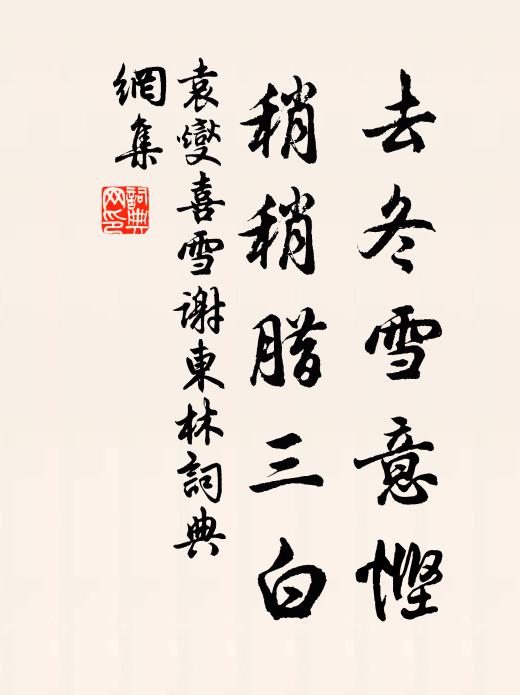 去冬雪意悭
稍稍腊三白
袁燮喜雪谢東林詞典
網集
詞典
网印